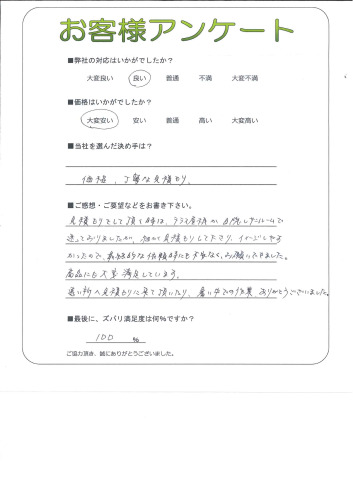 お客様アンケート
■弊社の対応はいかがでしたか？
大変良い 良い 普通 不満 大変不満
■価格はいかがでしたか？
大変安い 安い 普通 高い 大変高い
■当社を選んだ決め手は？
価格、丁寧な見積もり、
■ご感想・ご要望などをお書き下さい。
見積もりをして頂く時は、テラス屋根か、
迷っておりましたが、細かく見積もりして下さり、イメージしやす
かったので、最終的な依頼時にも不安なく、お願いできました。
商品にも大変満足しています。
遠い所へ見積もりに来て頂いたり、暑い中での作業ありがとうございました。
■最後に、ズバリ満足度は何％ですか？
100 %
ご協力頂き、誠にありがとうございました。